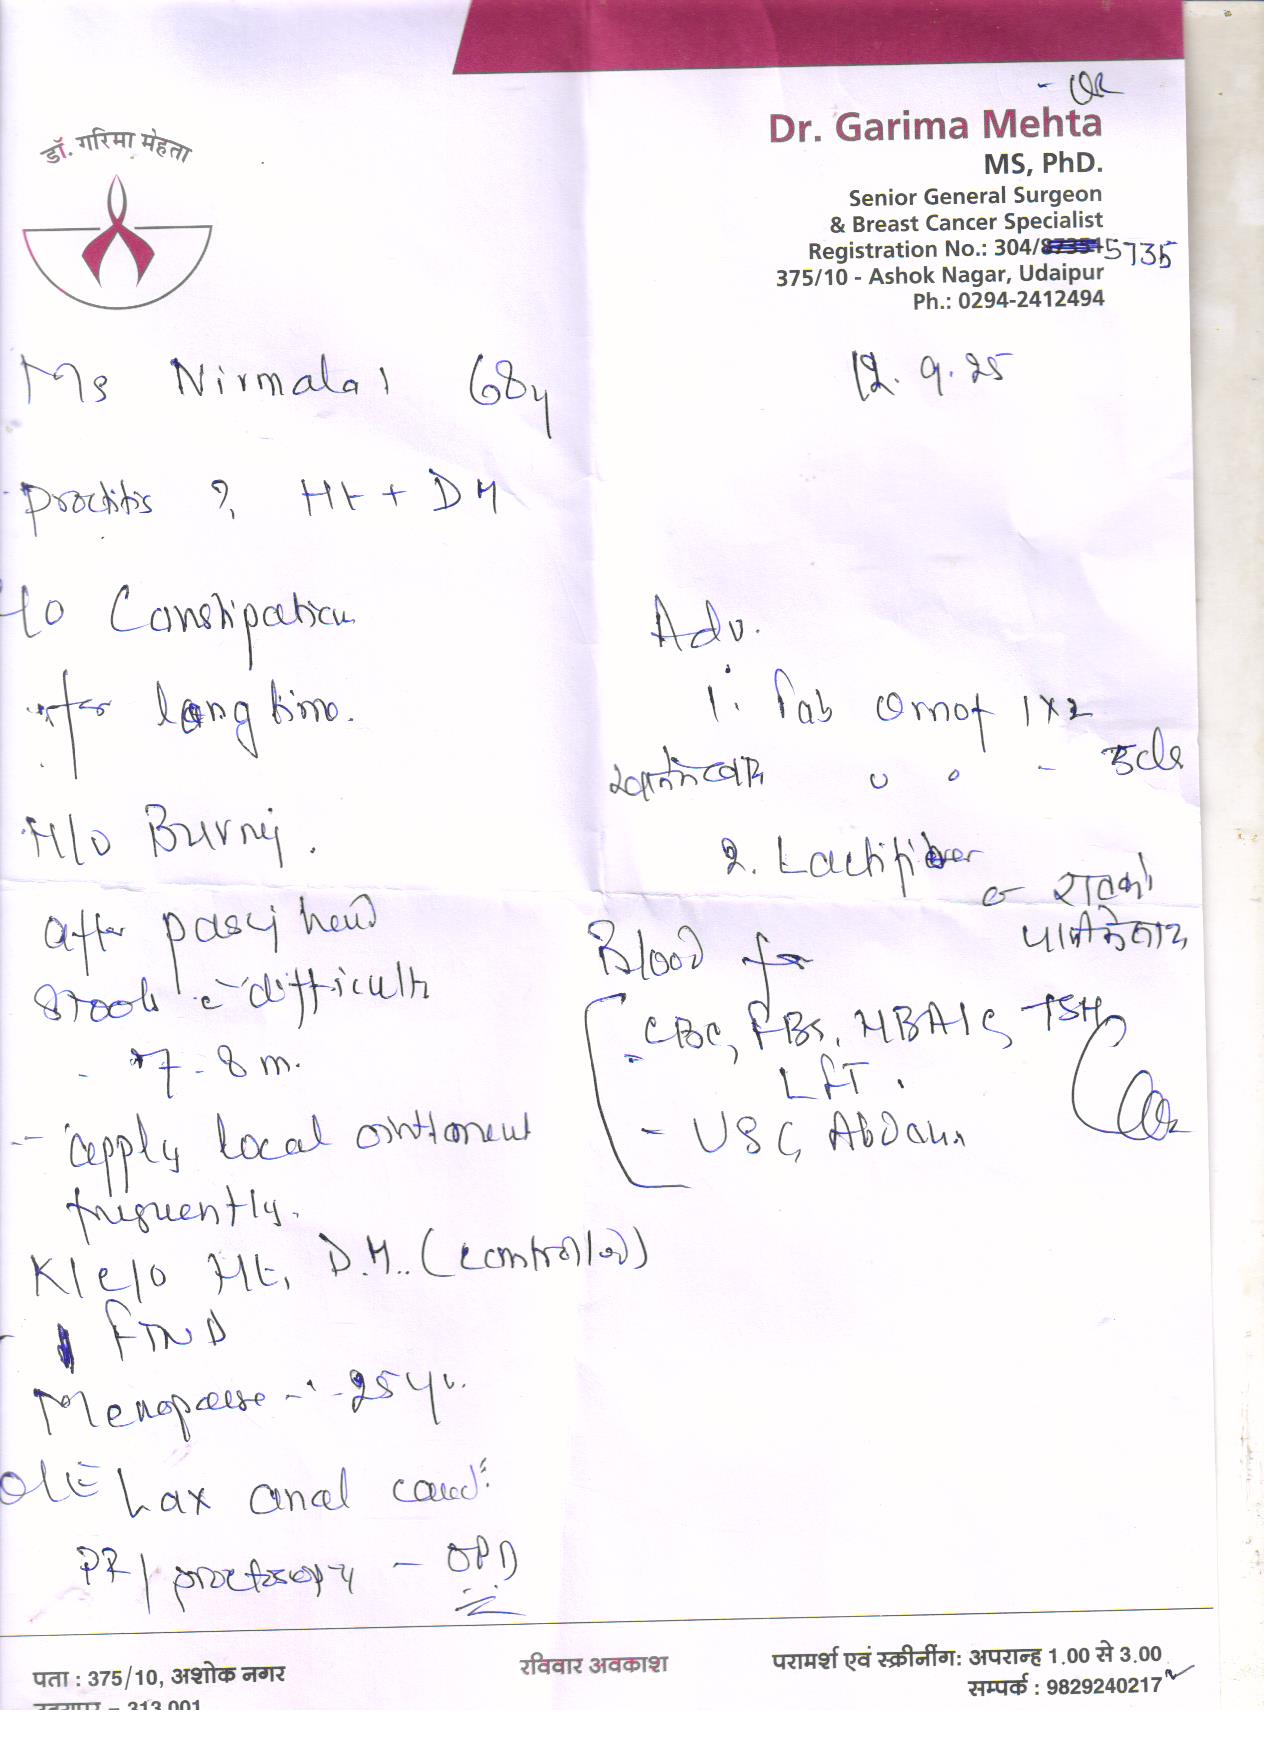 डॉ. गरिमा मेहता
Dr. Garima Mehta
MS, PhD.
Senior General Surgeon
& Breast Cancer Specialist
Registration No.: 304/5735
375/10 - Ashok Nagar, Udaipur
Ph.: 0294-2412494
Ms Nirmala 68y
12.9.25
Proctitis ? Ht + DM
Constipation
for long time.
H/o Burnij.
after pasij herd
stools c difficulti
- 7-8 m.
- apply local ointment
frequently.
K/c/o Ht, D.M. (controlled)
- FTND
Menopause - 25 yr.
O/E Lax anal canal
PR/proctoscopy - OPD
Adv.
1. Tab Ornof 1x2
- 5ds
2. Lactifiber
रातको
Blood for
- CBC, FBS, HBA1C, TSH
LFT.
- USG Abdomen
पता : 375/10, अशोक नगर
उदयपुर - 313 001
रविवार अवकाश
परामर्श एवं स्क्रीनींग: अपरान्ह 1.00 से 3.00
सम्पर्क : 9829240217